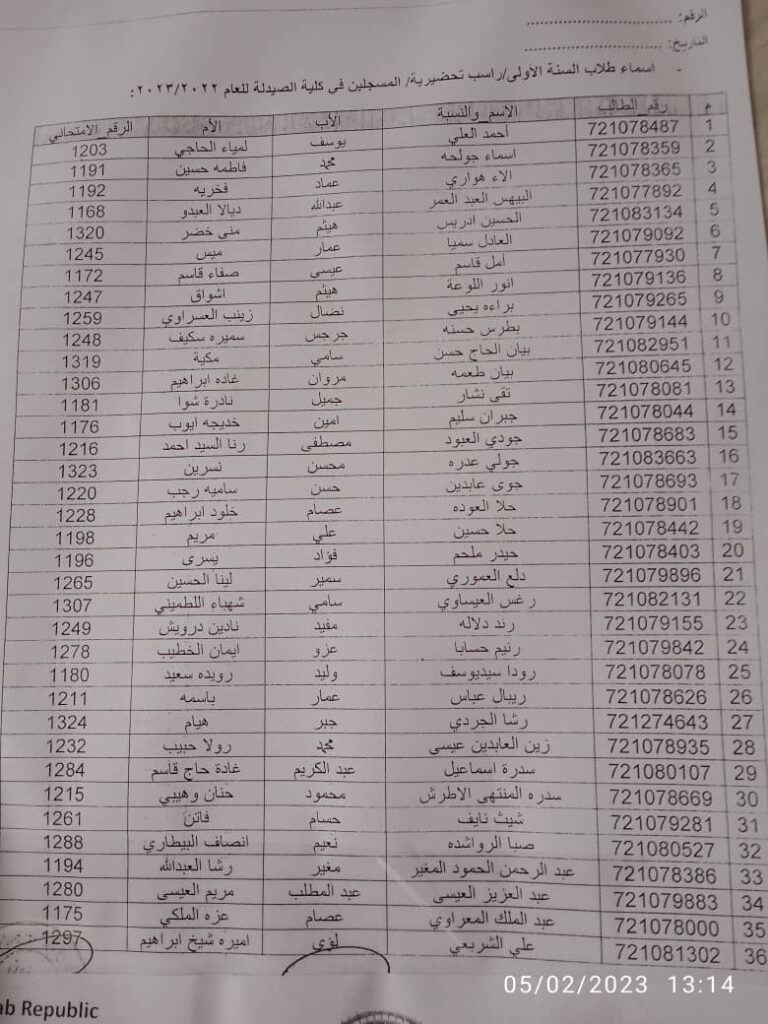 الرقم: ................................
التاريخ: ................................
- اسماء طلاب السنة الأولى/راسب تحضيرية/ المسجلين في كلية الصيدلة للعام ٢٠٢٣/٢٠٢٢:
م رقم_الطالب الاسم_والنسبة الأب الأم الرقم_الامتحاني
1 721078487 أحمد العلي يوسف لمياء الحاجي 1203
2 721078359 اسماء جولحه محمد فاطمه حسين 1191
3 721078365 الاء هواري عماد فخريه 1192
4 721077892 البيهس العبد العمر عبدالله ديالا العبدو 1168
5 721083134 الحسين ادريس هيثم منى خضر 1320
6 721079092 العادل سميا عمار ميس 1245
7 721077930 أمل قاسم عيسى صفاء قاسم 1172
8 721079136 انور اللوعة هيثم اشواق 1247
9 721079265 براءه يحيى نضال زينب العسراوي 1259
10 721079144 بطرس حسنه جرجس سميره سكيف 1248
11 721082951 بيان الحاج حسن سامي مكية 1319
12 721080645 بيان طعمه مروان غاده ابراهيم 1306
13 721078081 تقى نشار جميل نادرة شوا 1181
14 721078044 جبران سليم امين خديجه ايوب 1176
15 721078683 جودي العبود مصطفى رنا السيد احمد 1216
16 721083663 جولي عدره محسن نسرين 1323
17 721078693 جوى عابدين حسن ساميه رجب 1220
18 721078901 حلا العوده عصام خلود ابراهيم 1228
19 721078442 حلا حسين علي مريم 1198
20 721078403 حيدر ملحم فؤاد يسرى 1196
21 721079896 دلع العموري سمير لينا الحسين 1265
22 721082131 رغس العيساوي سامي شهباء اللطميني 1307
23 721079155 رند دلاله مفيد نادين درويش 1249
24 721079842 رنيم حسابا عزو ايمان الخطيب 1278
25 721078078 رودا سيديوسف وليد رويده سعيد 1180
26 721078626 ريبال عباس عمار باسمه 1211
27 721274643 رشا الجردي جبر هيام 1324
28 721078935 زين العابدين عيسى محمد رولا حبيب 1232
29 721080107 سدرة اسماعيل عبد الكريم غادة حاج قاسم 1284
30 721078669 سدره المنتهى الاطرش محمود حنان وهيبي 1215
31 721079281 شيث نايف حسام فاتن 1261
32 721080527 صبا الرواشده نعيم انصاف البيطاري 1288
33 721078386 عبد الرحمن الحمود المغير مغير رشا العبدالله 1194
34 721079883 عبد العزيز العيسى عبد المطلب مريم العيسى 1280
35 721078000 عبد الملك المعراوي عصام عزه الملكي 1175
36 721081302 علي الشربعي لؤي اميره شيخ ابراهيم 1297
05/02/2023 13:14
ab Republic